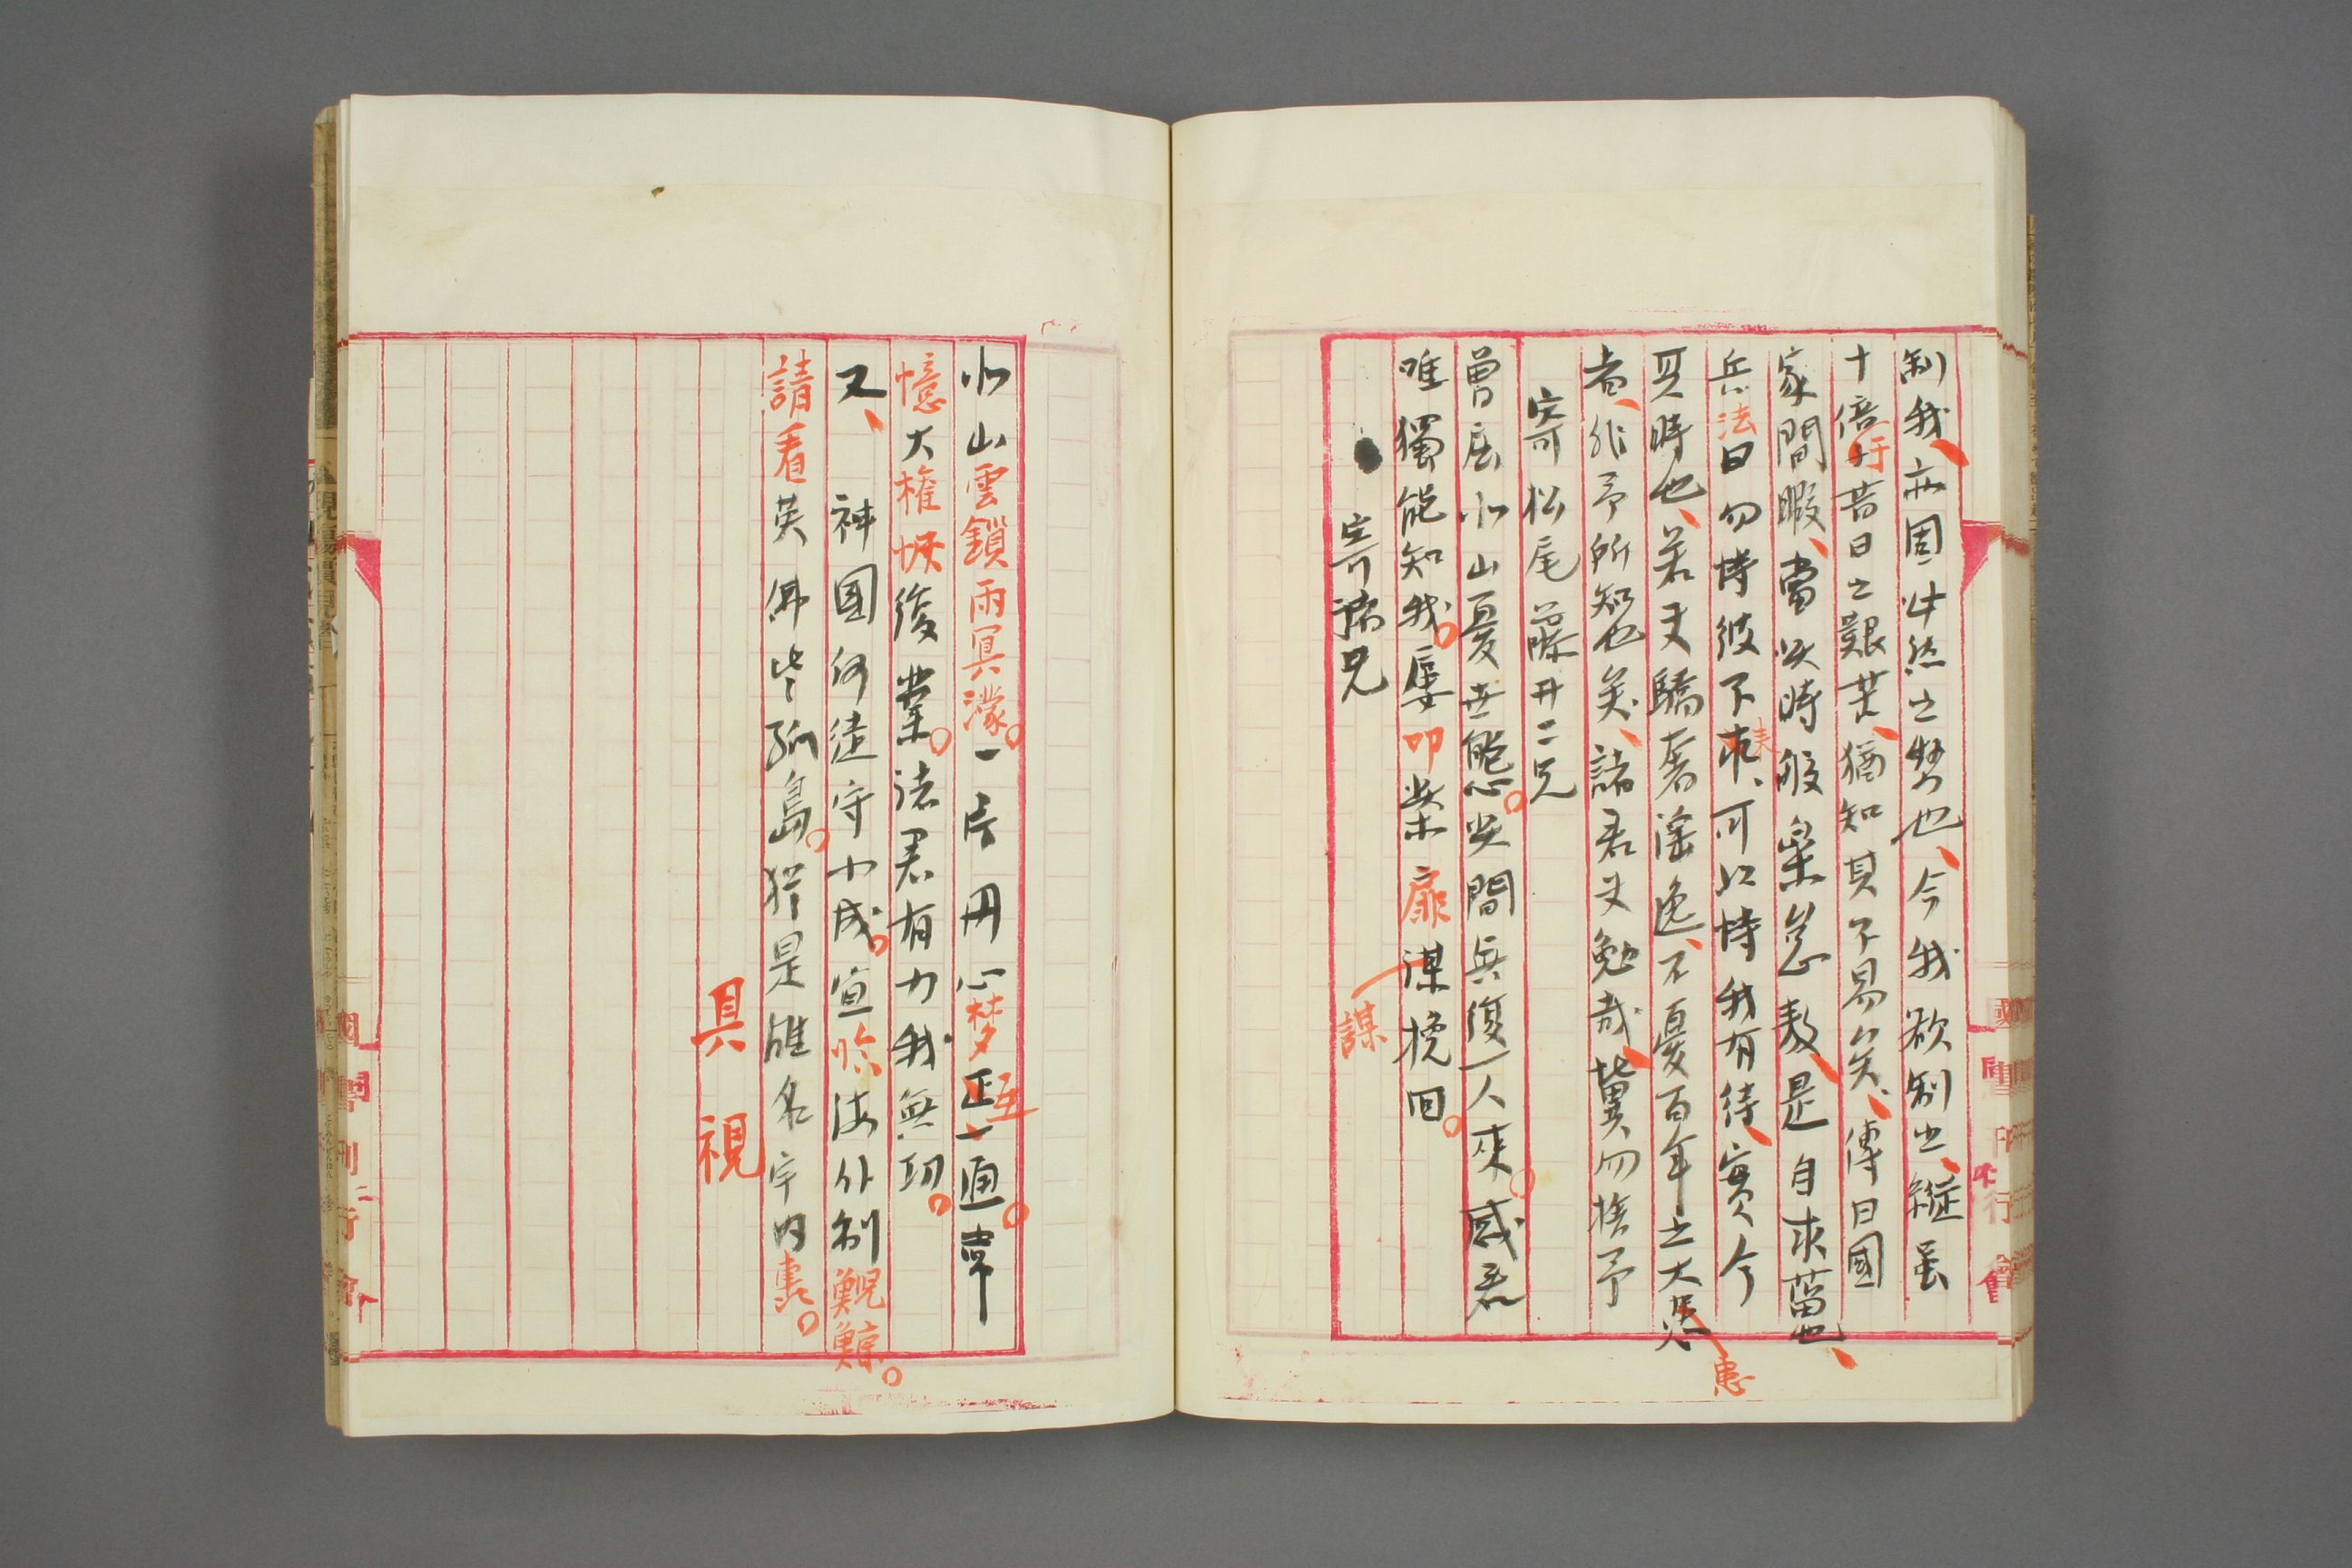 制我、亦固必然之勢也、今我欲制之、縱虽
十倍於昔日之艱苦、猶知其不易矣、傳曰國
家間暇、當此時般樂怠敖、是自求菑也、
兵法曰勿恃彼不来、可以恃我有待、實今
其時也、若夫驕奢淫逸、不憂百年之大患
者、非予所知也矣、諸君夫勉哉、冀勿捨予
寄松尾藤井二兄
曽居北山憂世態。此間無復一人來。感君
唯獨能知我。屢叩柴扉謀挽回。
謀
寄諸兄
北山雲鎖雨冥濛。一片丹心梦互通。常
憶大権恢復業。諸君有力我無功。
又、神国何徒守小成。宣臨海外制鯢鯨。
請看英佛皆孤島。猶是雄名宇内轟。
具視
患